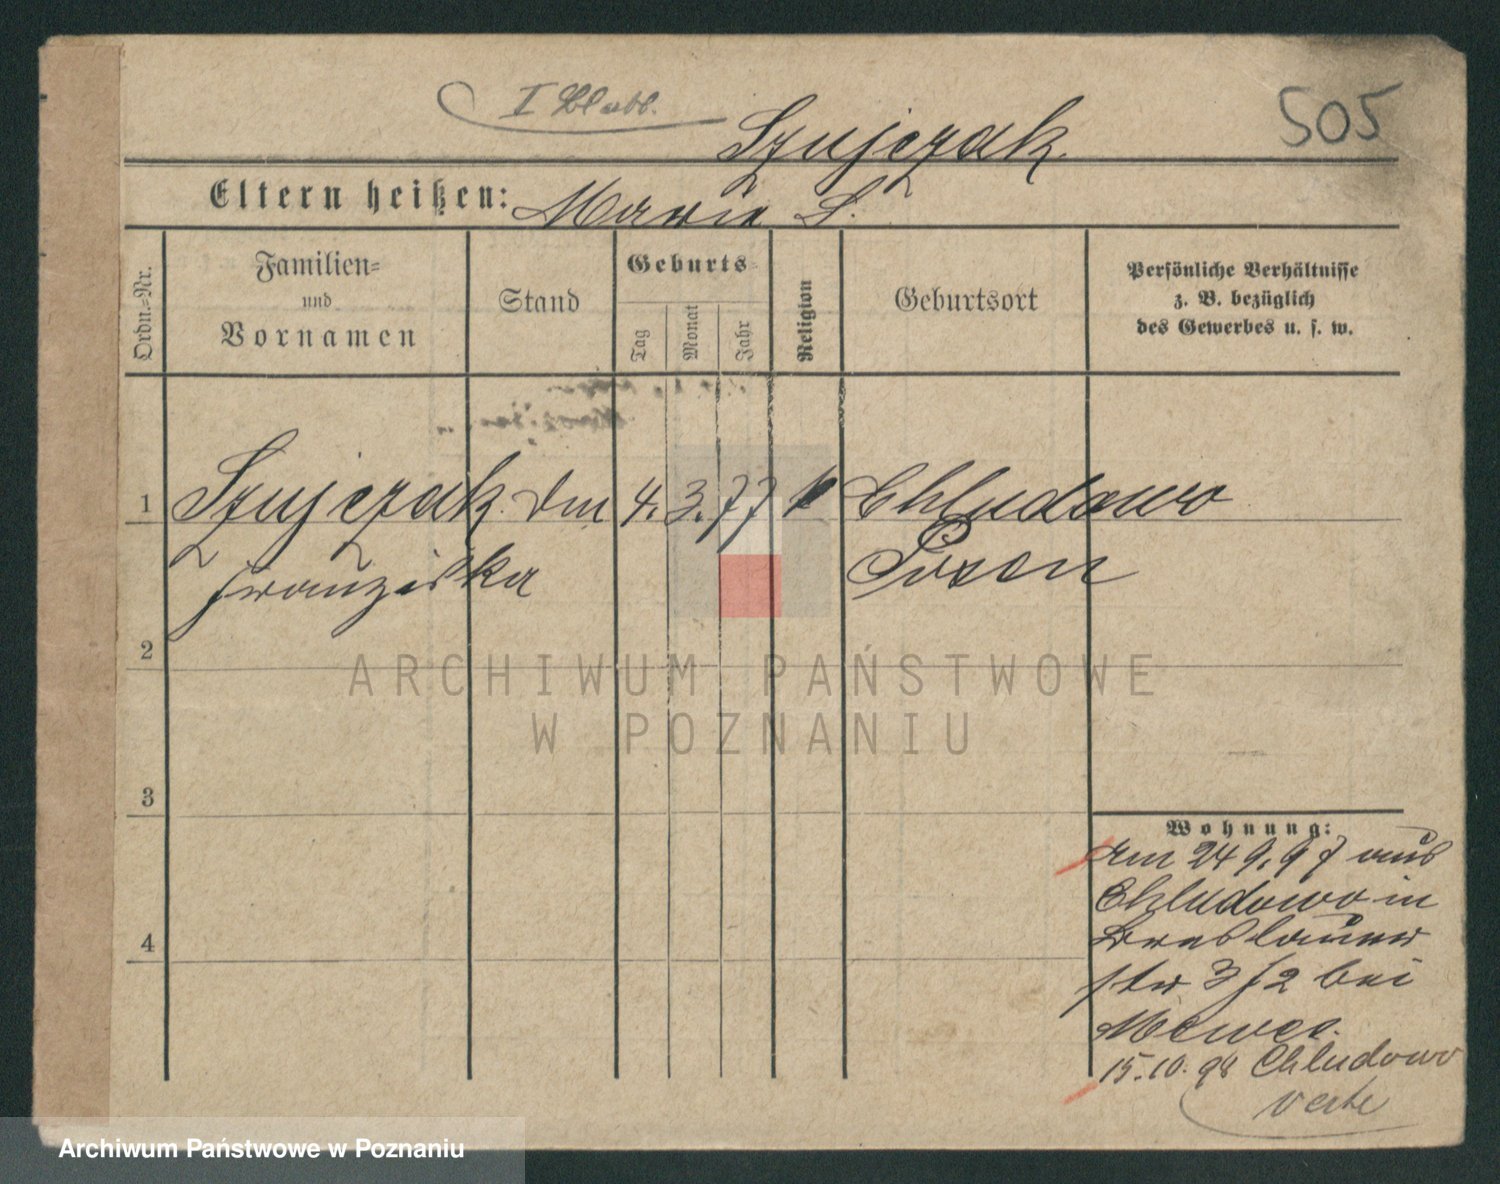 I Blatt.
505
Szujczak.
Eltern heißen: Marie S.
Ordn.-Nr.
Familien-
und
Vornamen
Stand
Geburts-
Tag
Monat
Jahr
Religion
Geburtsort
Persönliche Verhältnisse
z. B. bezüglich
des Gewerbes u. s. w.
1 Szujczak 4. 3. 77 k Chludowo
Franziska Posen
2
3
4
ARCHIWUM PAŃSTWOWE
W POZNANIU
Wohnung:
Am 24 9. 97 aus
Chludowo in
Breslauer
str 3 J 2 bei
Mewes.
15.10.98 Chludowo
verte
Archiwum Państwowe w Poznaniu